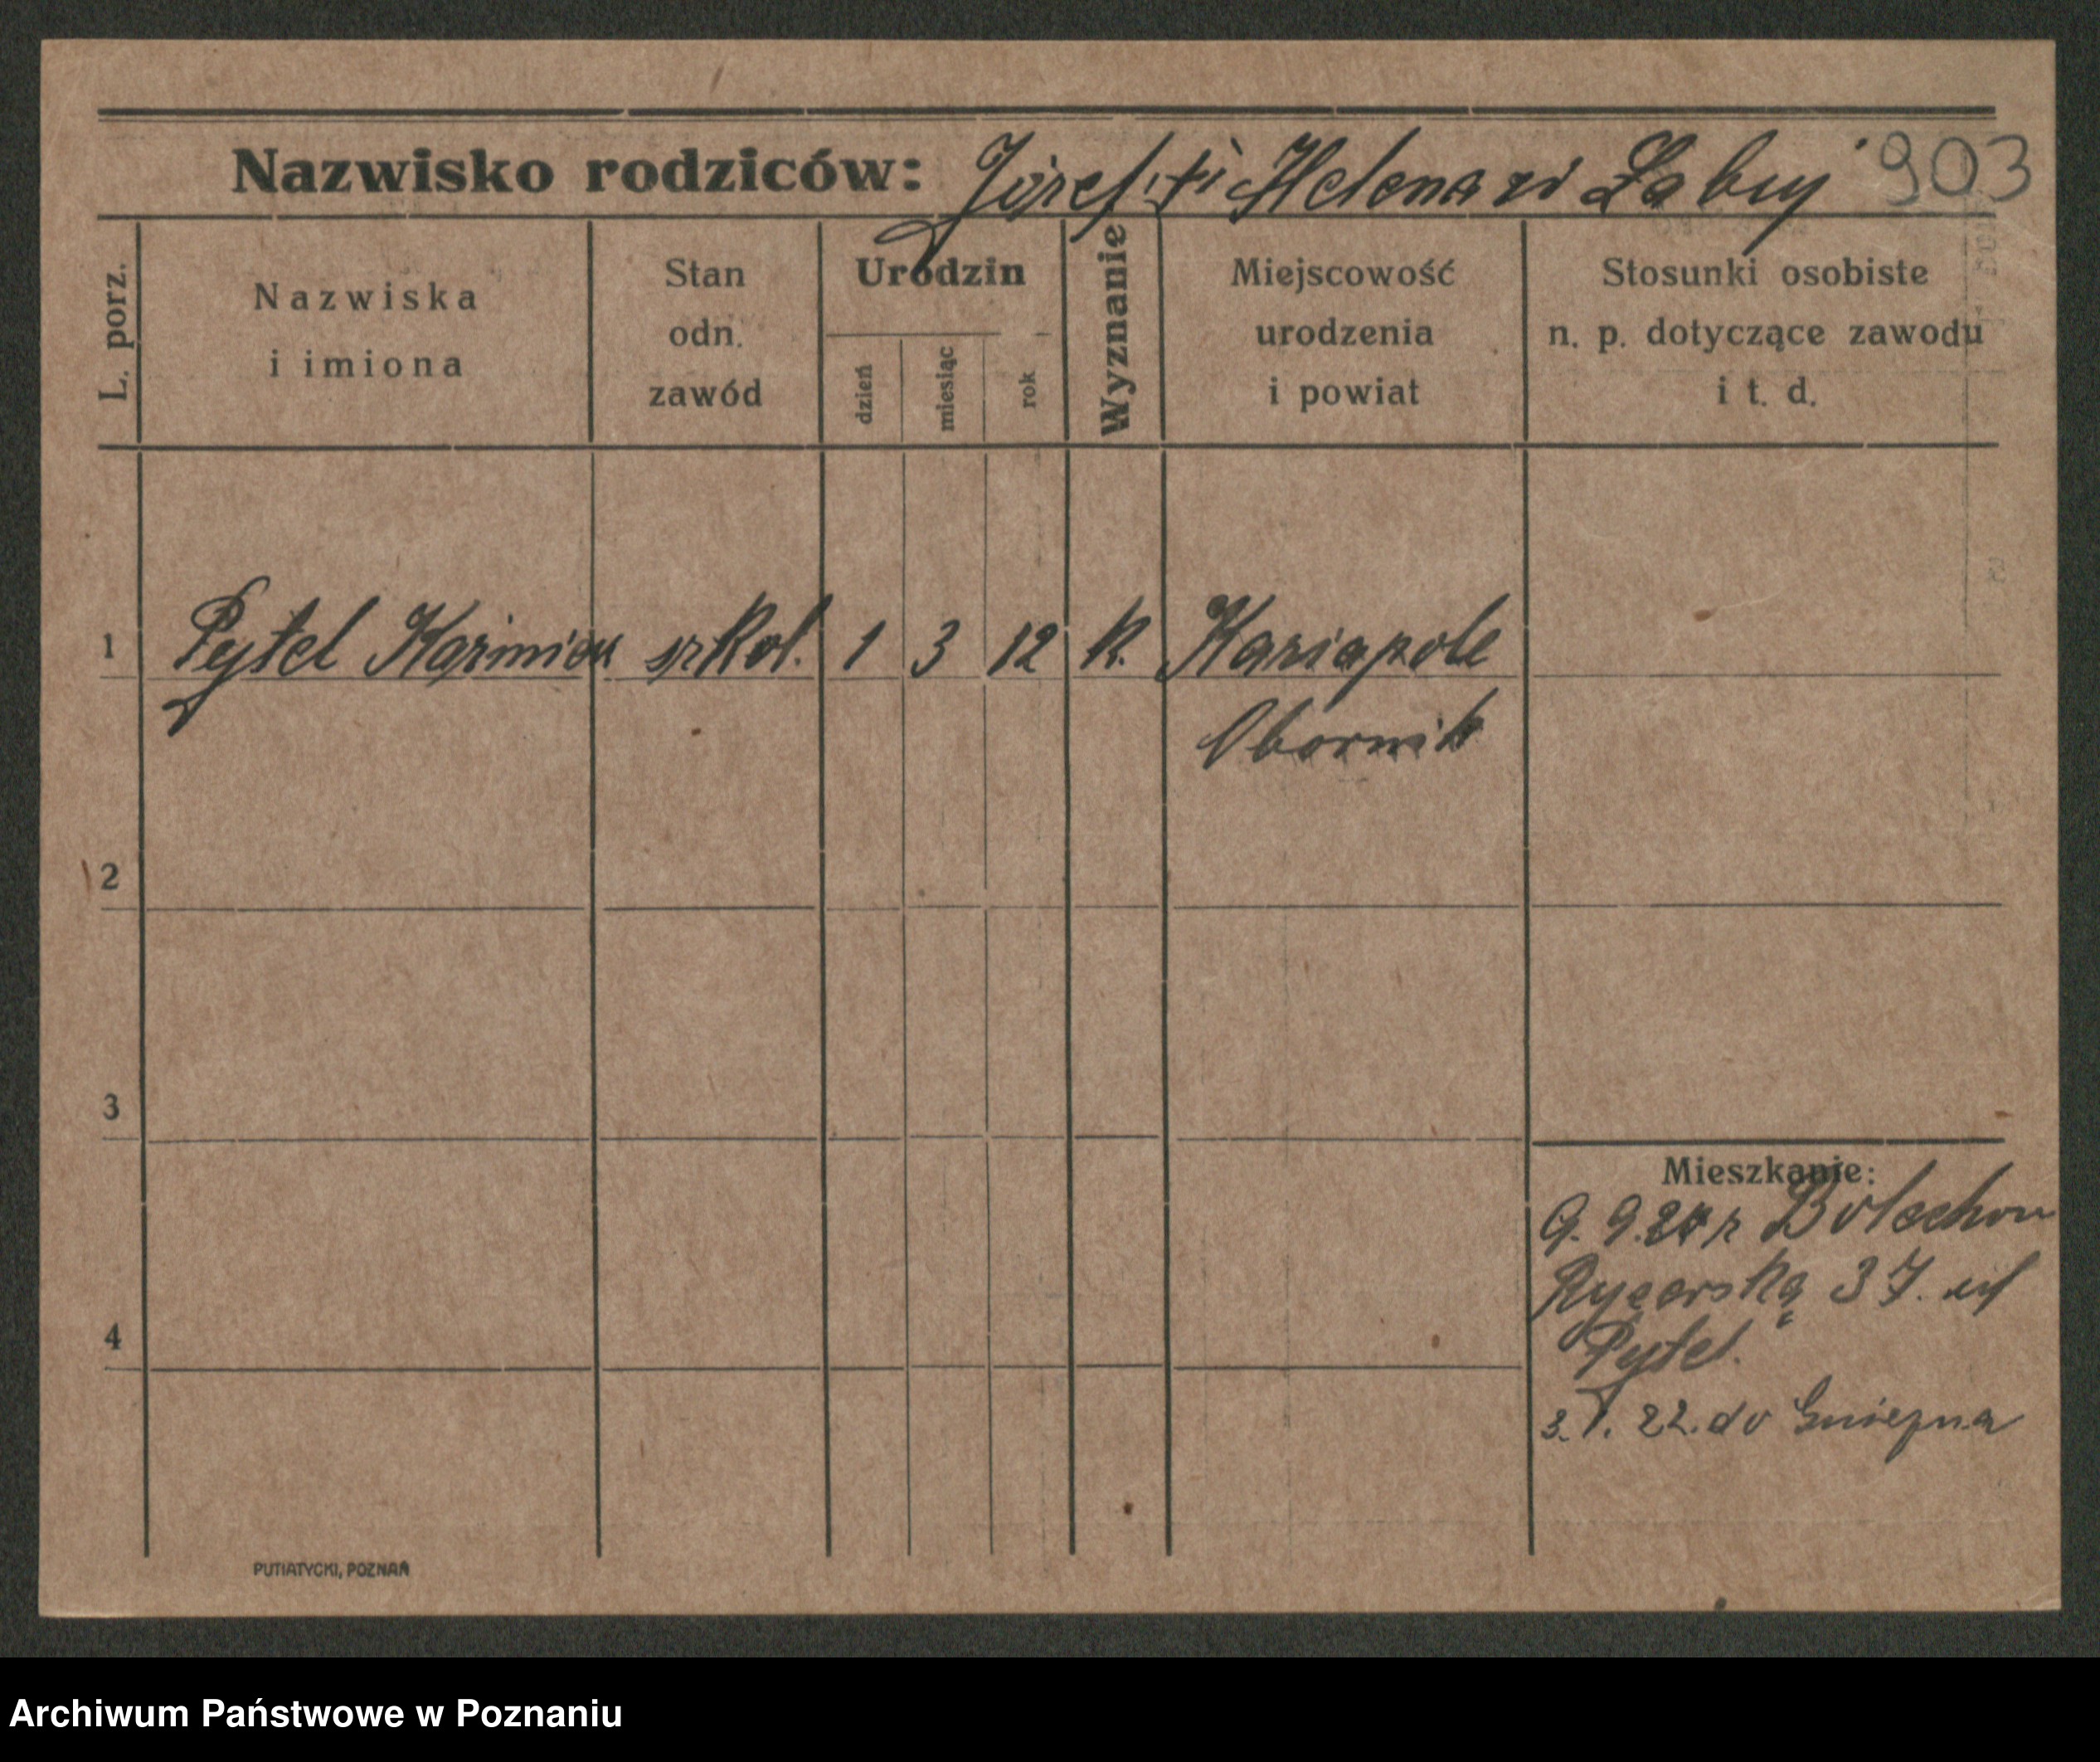 Nazwisko rodziców: Józef i Helena zd Łabuj 903
L. porz.
Nazwiska i imiona
Stan odn. zawód
Urodzin
dzień
miesiąc
rok
Wyznanie
Miejscowość urodzenia i powiat
Stosunki osobiste n. p. dotyczące zawodu i t. d.
1 Pytel Kazimierz szkol. 1 3 12 k.
Obornik
2
3
4
Mieszkanie:
9. 9. z Bolechow
Rycerska 37.
Pytel.
3. 22. do Gniezna
PUTIATYCKI, POZNAŃ
Archiwum Państwowe w Poznaniu